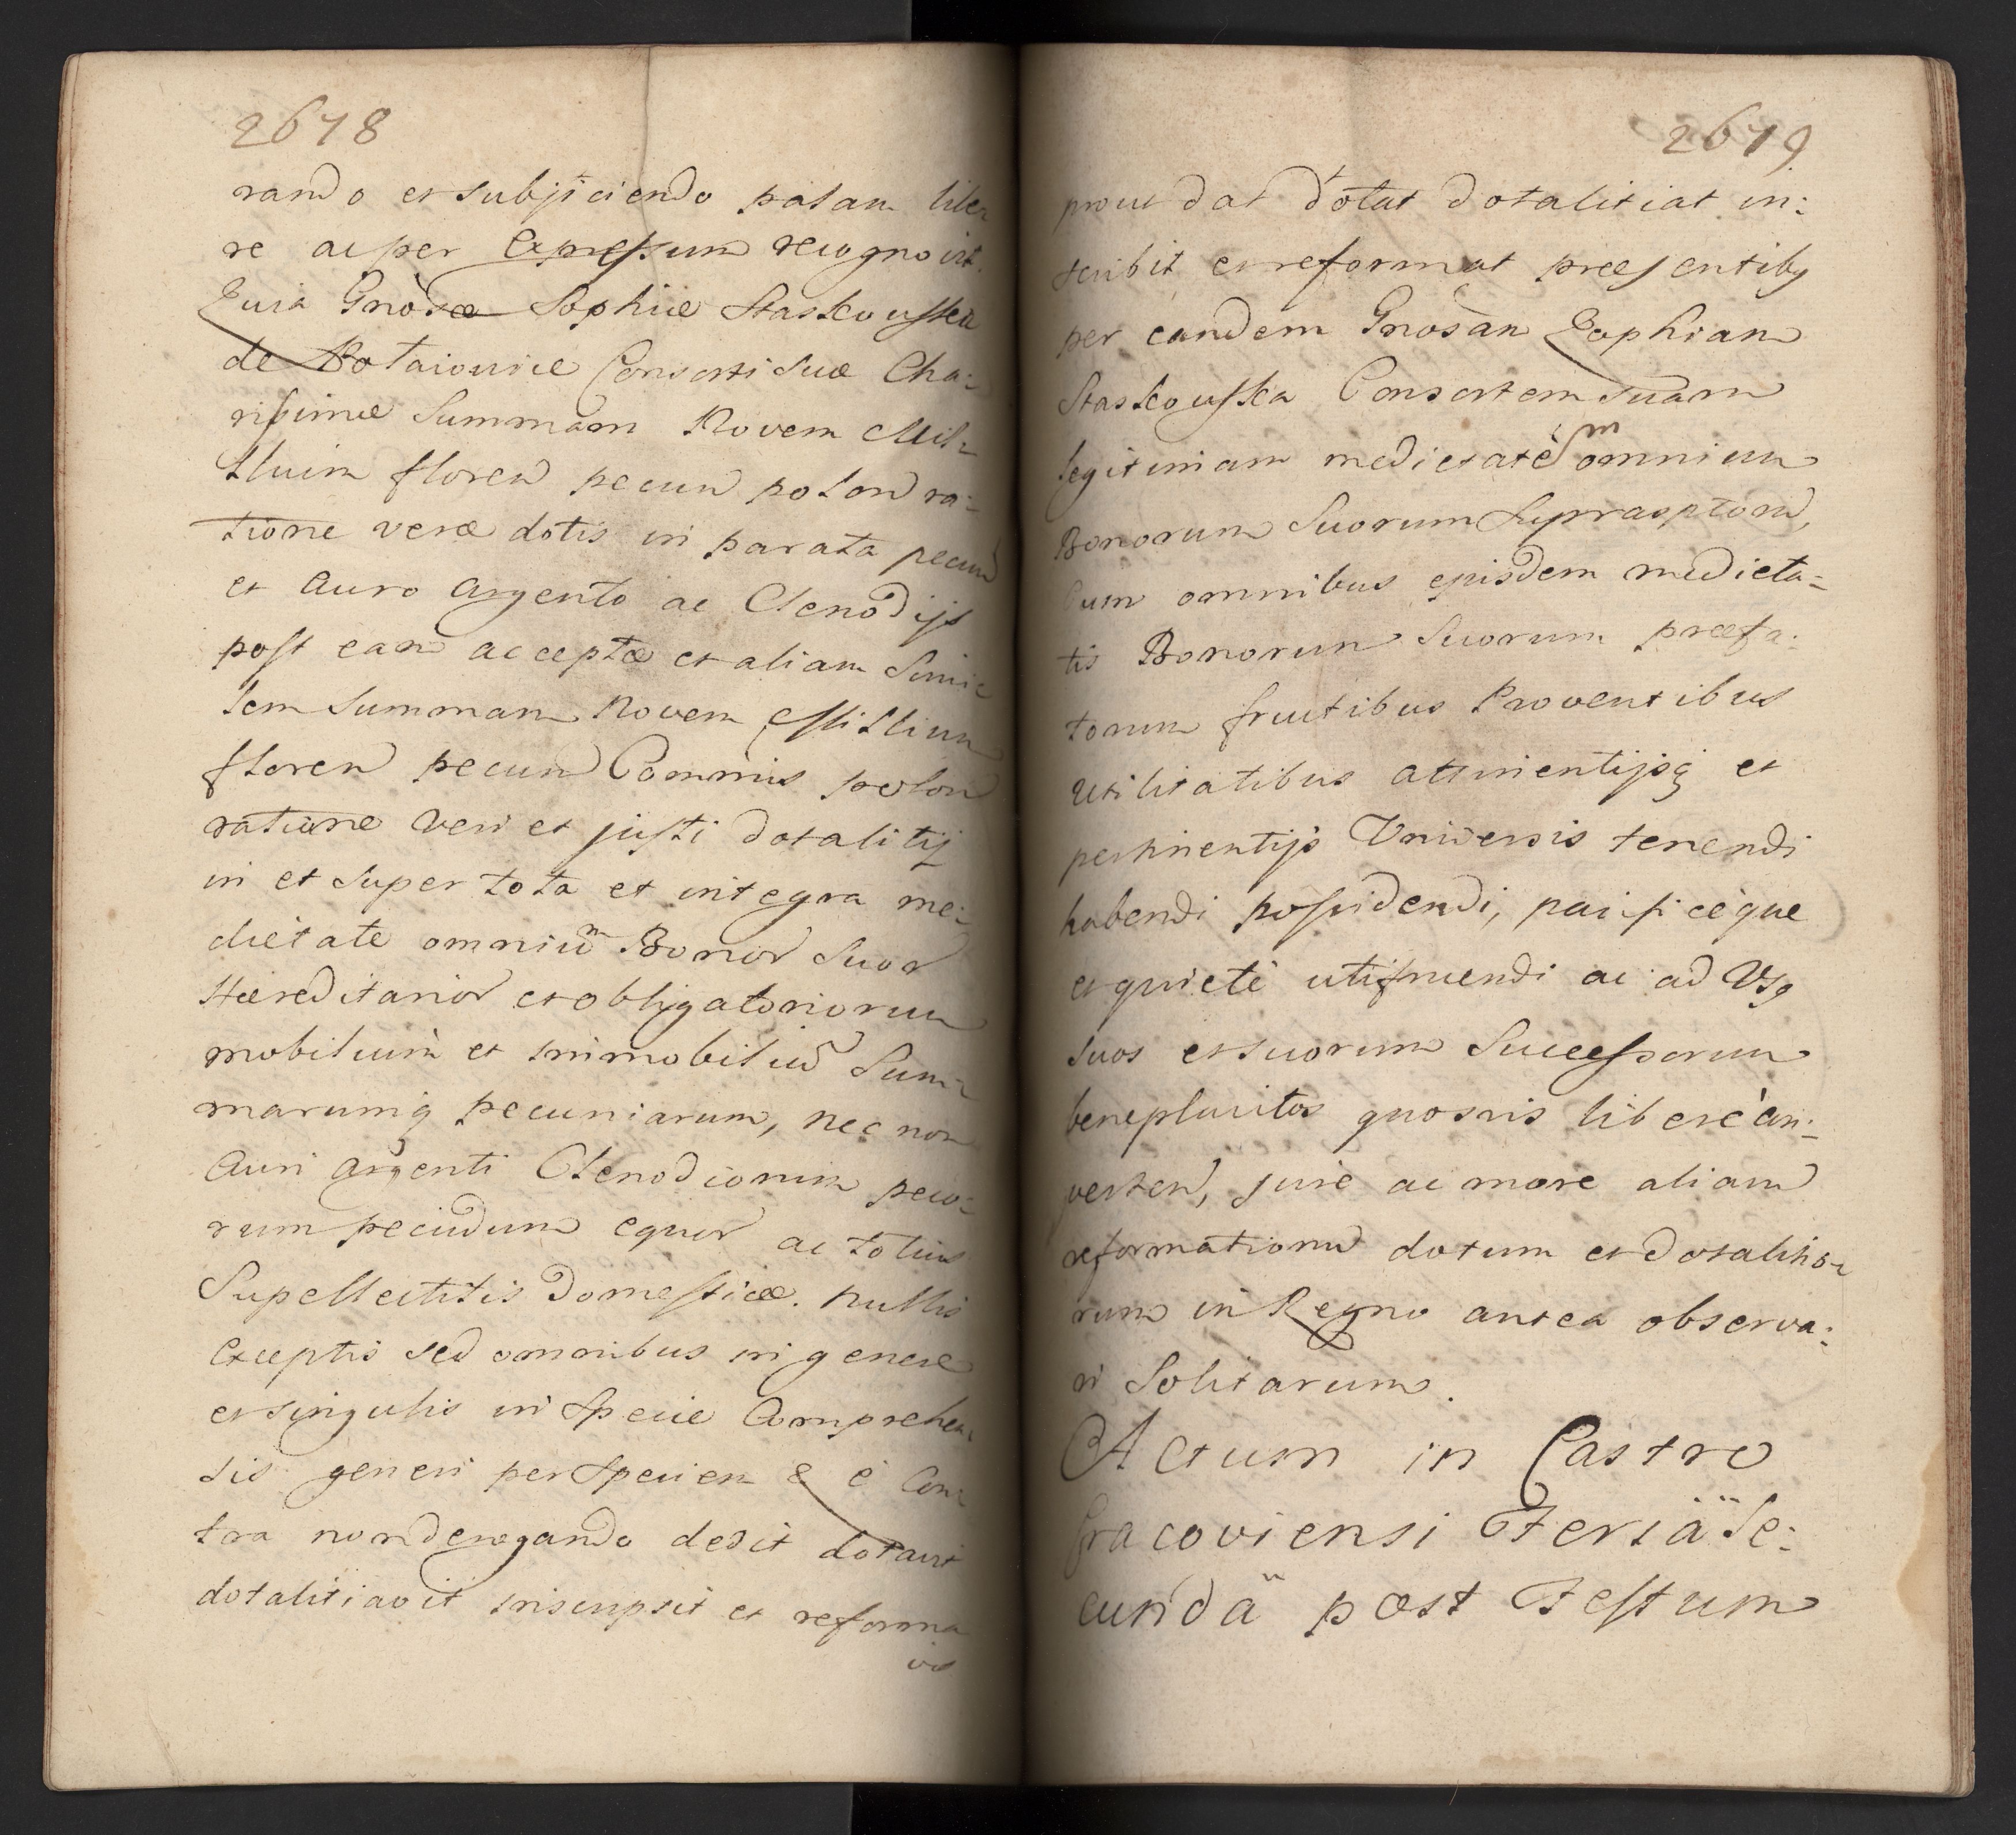 2678
rando et subjiciendo palam libe
re ac per expressum recognovit
Quia Gnosæ Sophiæ Staskowska
de Potaiowice Consorti suæ Cha:
rissimæ Summam Novem Mil:
llium floren pecun polon ra:
tione veræ dotis in parata pecun
et auro argento ac Clenodijs
post eam acceptæ et aliam Simi:
lem Summam Novem Millium
floren pecun Commis polon
ratione veri et justi dotalitij
in et super tota et integra me:
dietate omnium Bonor Suor
Hæreditarior et obligatoriorum
mobilium et immobiliu Sum:
marumq pecuniarum, nec non
Auri argenti Clenodiorum peco:
rum pecudum equor ac totius
Supellectilis Domesticæ. nullis
exceptis sed omnibus in genere
et singulis in Specie Comprehen
sis generi per Speciem & è Con:
tra non derogando dedit dotavit
dotalitiavit inscripsit et reforma
vit
2679
prout dat dotat dotalitiat in:
scribit et reformat præsentibq
per eandem Gnosan Zophiam
Staskowska Consortem suam
legitimam medietatem omnium
Bonorum Suorum Supraoptoru,
Cum omnibus ejusdem medieta:
tis Bonorum Suorum præfa:
torum fructibus Proventibus
Utilitatibus attinentijsq et
pertinentijs Universis tenendi
habendi possidendi, pacificèque
et quietè utifruendi ac ad Usq
suos et suorum Successorum
beneplacitos quosvis liberè con:
verten, jure ac more aliaru
reformationu dotum et dotalitio:
rum in Regno antea observa:
ri Solitarum.
Actum in Castro
Cracoviensi Feriä Se:
cundä post Festum